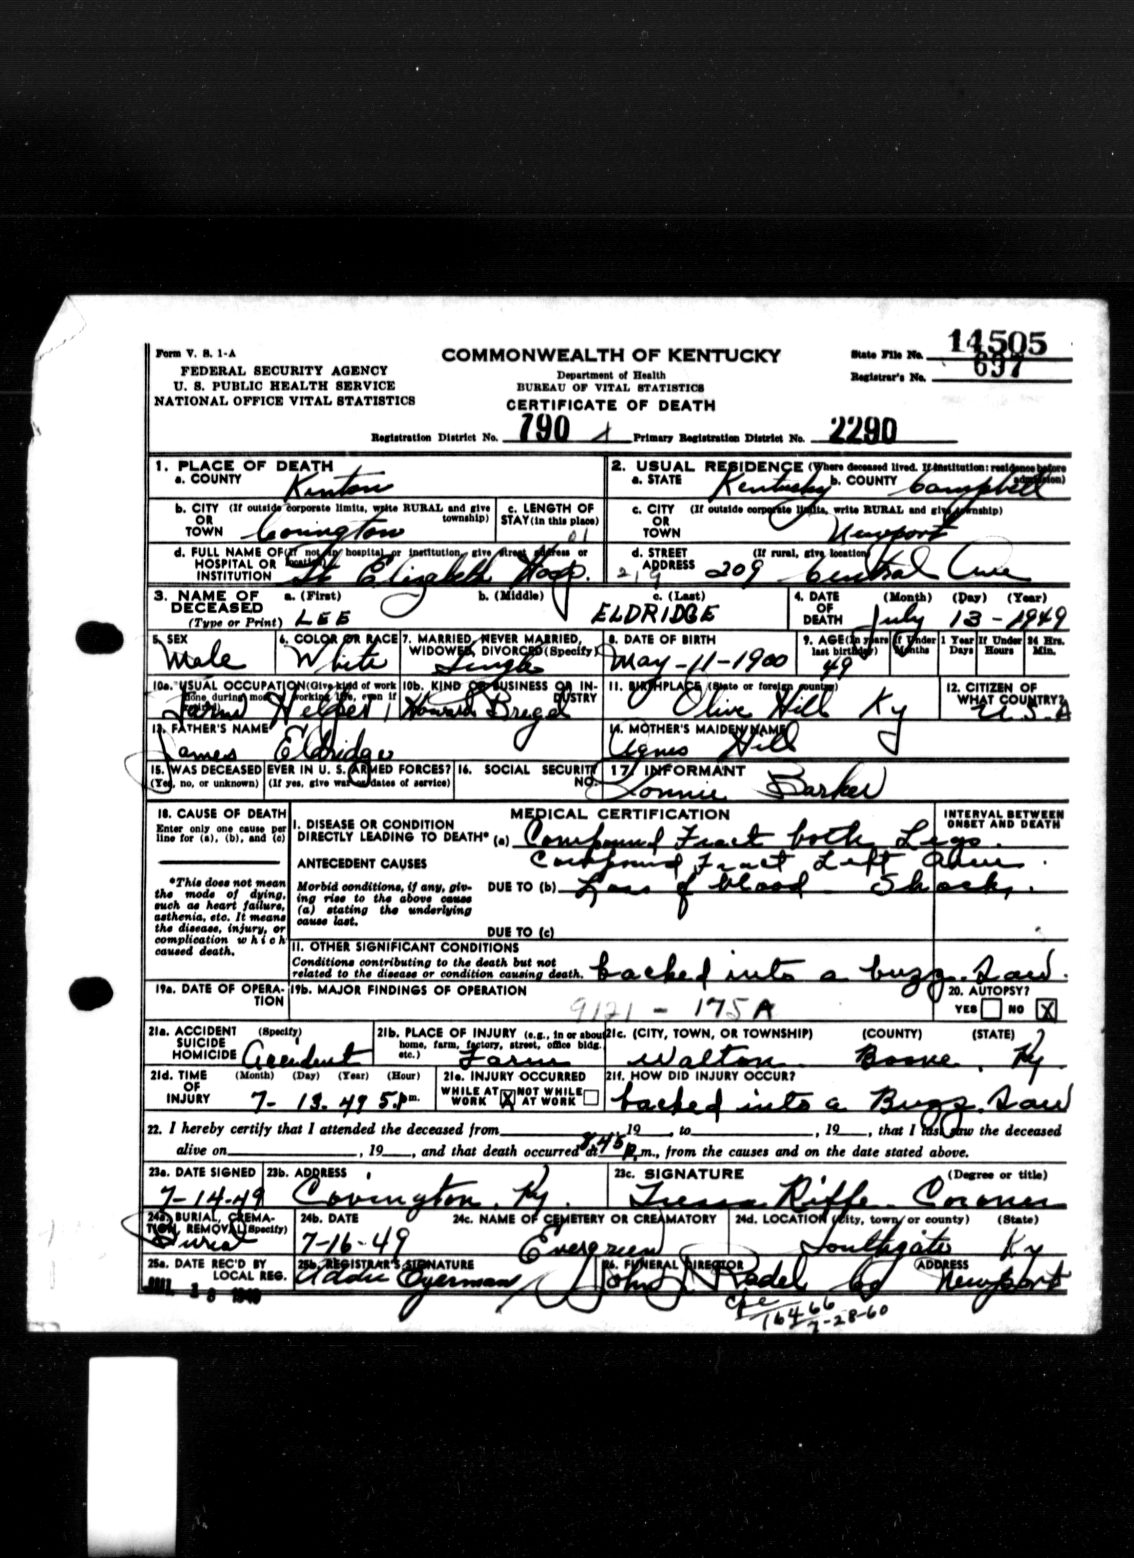 Form V. S. 1-A
FEDERAL SECURITY AGENCY
U. S. PUBLIC HEALTH SERVICE
NATIONAL OFFICE VITAL STATISTICS
COMMONWEALTH OF KENTUCKY
Department of Health
BUREAU OF VITAL STATISTICS
CERTIFICATE OF DEATH
State File No. 14505
Registrar's No. 697
Registration District No. 790 Primary Registration District No. 2290
1. PLACE OF DEATH
a. COUNTY Kenton
2. USUAL RESIDENCE (Where deceased lived. If institution: residence before admission)
a. STATE Kentucky b. COUNTY Campbell
b. CITY (If outside corporate limits, write RURAL and give township)
OR
TOWN Covington
c. LENGTH OF STAY (in this place) 01
c. CITY (If outside corporate limits, write RURAL and give township)
OR
TOWN Newport
d. FULL NAME OF (If not in hospital or institution, give street address or location)
HOSPITAL OR
INSTITUTION St Elizabeth Hosp.
d. STREET ADDRESS (If rural, give location)
219 209 Central Ave
3. NAME OF DECEASED (Type or Print)
a. (First) LEE b. (Middle) c. (Last) ELDRIDGE
4. DATE OF DEATH (Month) (Day) (Year) July 13 - 1949
5. SEX Male
6. COLOR OR RACE White
7. MARRIED, NEVER MARRIED, WIDOWED, DIVORCED (Specify) Single
8. DATE OF BIRTH May - 11 - 1900
9. AGE (In years last birthday) 49 If Under 1 Year Months Days If Under 24 Hrs. Hours Min.
10a. USUAL OCCUPATION (Give kind of work done during most of working life, even if retired) Farm Helper
10b. KIND OF BUSINESS OR INDUSTRY Howard Bregel
11. BIRTHPLACE (State or foreign country) Olive Hill Ky
12. CITIZEN OF WHAT COUNTRY? U.S.A
13. FATHER'S NAME James Eldridge
14. MOTHER'S MAIDEN NAME Agnes Hill
15. WAS DECEASED EVER IN U. S. ARMED FORCES?
(Yes, no, or unknown) (If yes, give war or dates of service)
16. SOCIAL SECURITY NO.
17. INFORMANT Lonnie Barker
18. CAUSE OF DEATH
Enter only one cause per line for (a), (b), and (c)
*This does not mean the mode of dying, such as heart failure, asthenia, etc. It means the disease, injury, or complication which caused death.
MEDICAL CERTIFICATION
INTERVAL BETWEEN ONSET AND DEATH
I. DISEASE OR CONDITION
DIRECTLY LEADING TO DEATH* (a) Compound Fract both Legs.
ANTECEDENT CAUSES Compound Fract Left Arm.
Morbid conditions, if any, giving rise to the above cause (a) stating the underlying cause last.
DUE TO (b) Loss of blood Shock.
DUE TO (c)
II. OTHER SIGNIFICANT CONDITIONS
Conditions contributing to the death but not related to the disease or condition causing death. backed into a buzz saw.
19a. DATE OF OPERATION
19b. MAJOR FINDINGS OF OPERATION
9121 - 175A
20. AUTOPSY?
YES NO X
21a. ACCIDENT SUICIDE HOMICIDE (Specify) Accident
21b. PLACE OF INJURY (e.g., in or about home, farm, factory, street, office bldg. etc.) Farm
21c. (CITY, TOWN, OR TOWNSHIP) (COUNTY) (STATE)
Walton Boone Ky
21d. TIME OF INJURY (Month) (Day) (Year) (Hour) 7- 13. 49 5 P m.
21e. INJURY OCCURRED
WHILE AT WORK X NOT WHILE AT WORK
21f. HOW DID INJURY OCCUR?
backed into a Buzz Saw
22. I hereby certify that I attended the deceased from , 19 , to , 19 , that I last saw the deceased
alive on , 19 , and that death occurred at 8.45 P m., from the causes and on the date stated above.
23a. DATE SIGNED 7-14-49
23b. ADDRESS Covington Ky.
23c. SIGNATURE (Degree or title)
Riffe Coroner
24a. BURIAL, CREMATION, REMOVAL (Specify) Burial
24b. DATE 7-16-49
24c. NAME OF CEMETERY OR CREAMATORY Evergreen
24d. LOCATION (City, town, or county) (State) Southgate Ky
25a. DATE REC'D BY LOCAL REG.
25b. REGISTRAR'S SIGNATURE Addie Oyerman
26. FUNERAL DIRECTOR John J Radel Co ADDRESS Newport
16466
7-28-60